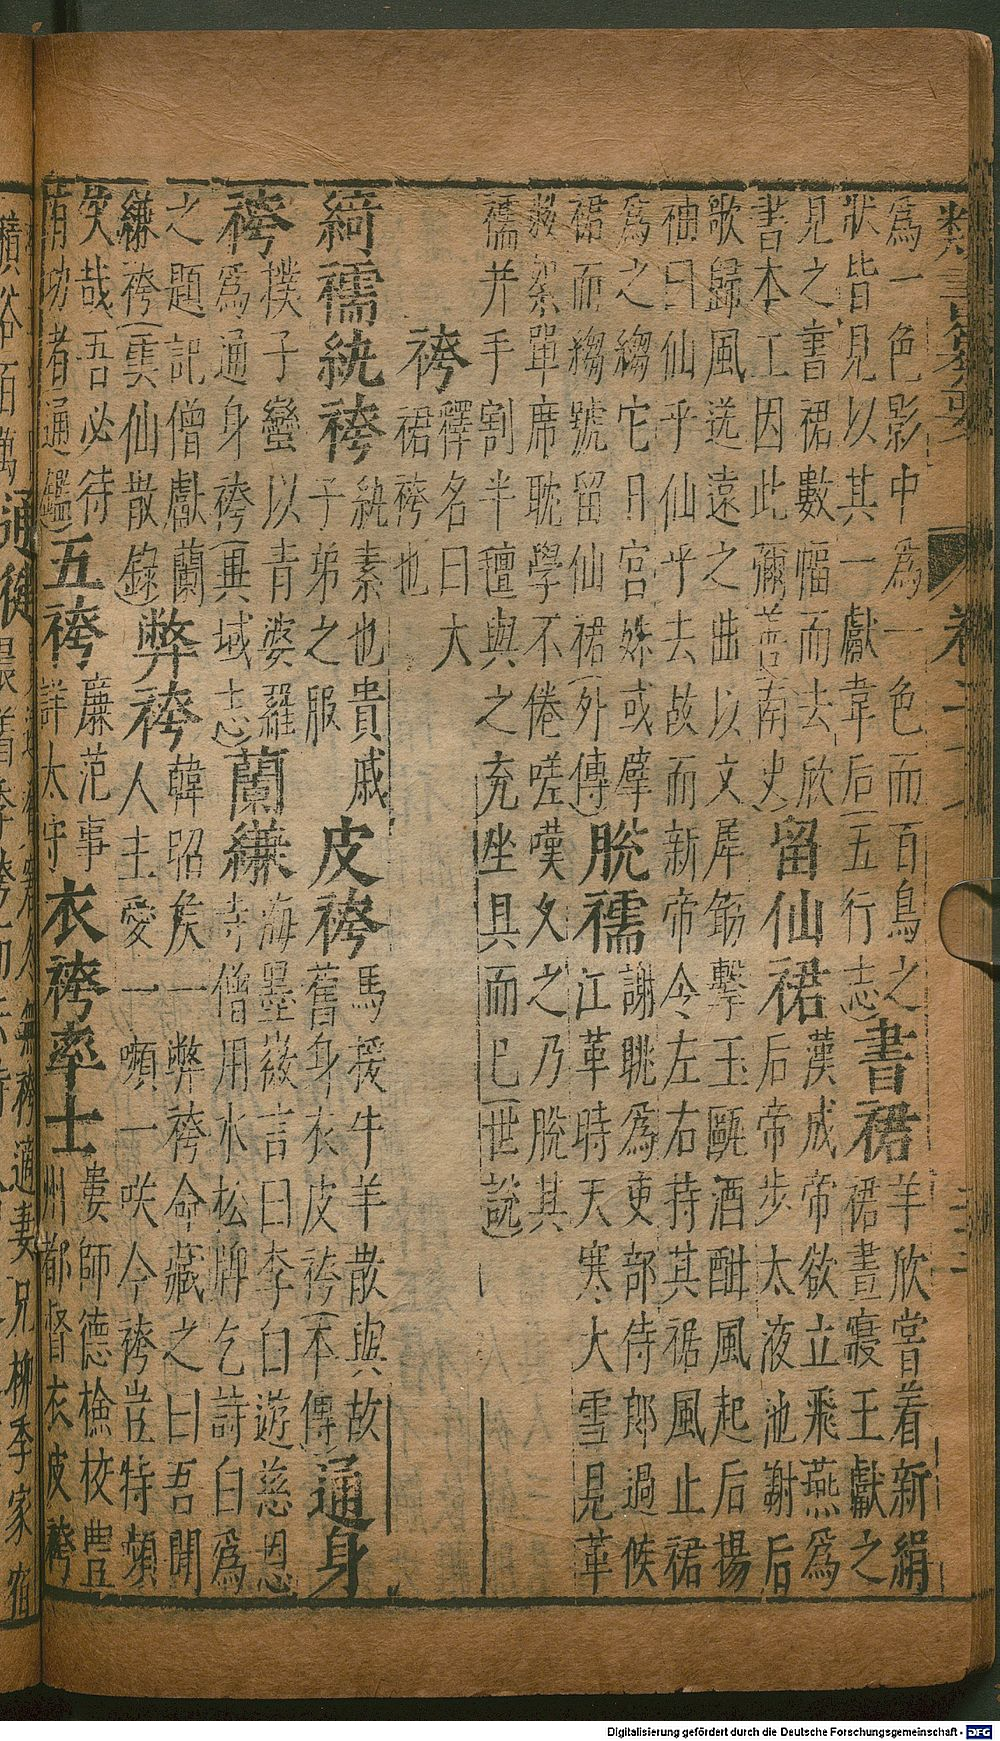 爲一色影中爲一色而百鳥之
狀皆見以其一獻韋后(五行志)書裙羊欣嘗着新絹
裙晝寢王獻之
見之書裙數幅而去欣
書本工因此彌善(南史)留仙裙漢成帝欲立飛燕爲
后帝步太液池謝后
歌歸風送遠之曲以文犀簪擊玉甌酒酣風起后揚
袖曰仙乎仙乎去故而新帝令左右持其裾風止裙
爲之縐它日宮姝或襞
裾而縐號留仙裙(外傳)脫襦謝眺爲吏部侍郎過候
江革時天寒大雪見革
敝絮單席耽學不倦嗟嘆久之乃脫其
襦并手割半氊與之充坐具而已(世說)
袴釋名曰大
裙袴也
綺襦紈袴紈素也貴戚
子弟之服皮袴馬援牛羊散與故
舊身衣皮袴(本傳)通身
袴撲子蠻以青婆羅
爲通身袴(異域志)蘭縑海墨微言曰李白遊慈恩
寺僧用水松牌乞詩白爲
之題訖僧獻蘭
縑袴(雲仙散錄)弊袴韓昭侯一弊袴命藏之曰吾聞
人主愛一嚬一咲今袴豈特嚬
咲哉吾必待
有功者(通鑑)五袴廉范事
詳太守衣袴率士婁師德檢校豐
州都督衣皮袴
Digitalisierung gefördert durch die Deutsche Forschungsgemeinschaft - DFG